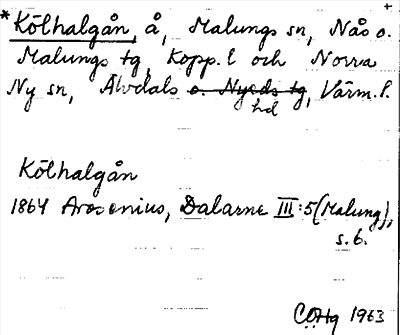 *Kölhalgån, å, Malungs sn, Nås o.
Malungs tg, Kopp. l och Norra
Ny sn, Älvdals o. Nyeds tg, Värm. l.
hd
Kölhalgån
1864 Arosenius, Dalarne III:5 (Malung),
s. 6.
1963